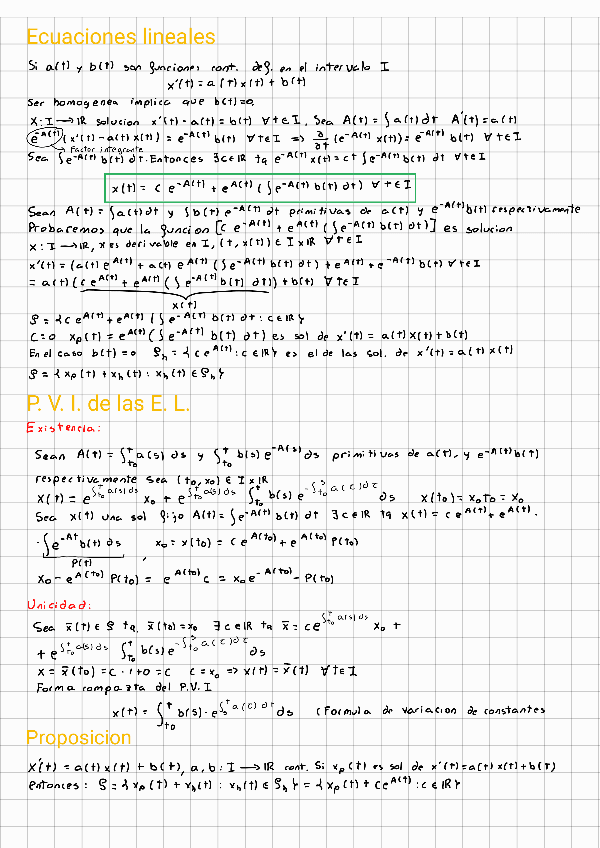 Ecuaciones lineales
Si a(t) y b(t) son funciones cont. def. en el intervalo I
x'(t) = a(t) x(t) + b(t)
Ser homogenea implica que b(t)=0.
X: I → IR solucion x'(t) - a(t) = b(t) ∀t∈I, Sea A(t) = ∫a(t) dt A'(t) = a(t)
e^-A(t) (x'(t) - a(t) x(t)) = e^-A(t) b(t) ∀t∈I => ∂/∂t (e^-A(t) x(t)) = e^-A(t) b(t) ∀t∈I
Factor integrante
Sea ∫e^-A(t) b(t) dt. Entonces ∃c∈IR tq e^-A(t) x(t) = c+ ∫e^-A(t) b(t) dt ∀t∈I
x(t) = c e^-A(t) + e^A(t) (∫e^-A(t) b(t) dt) ∀t∈I
Sean A(t) = ∫a(t)dt y ∫b(t) e^-A(t) dt primitivas de a(t) y e^-A(t) b(t) respectivamente
Probaremos que la funcion [c e^-A(t) + e^A(t) (∫e^-A(t) b(t) dt)] es solucion
x: I → IR, x es derivable en I, (t, x(t)) ∈ I x IR ∀t∈I
x'(t) = (a(t) e^A(t) + a(t) e^A(t) (∫e^-A(t) b(t) dt) + e^A(t) + e^-A(t) b(t) ∀t∈I
= a(t) (c e^A(t) + e^A(t) (∫e^-A(t) b(t) dt)) + b(t) ∀t∈I
x(t)
S = {c e^A(t) + e^A(t) (∫e^-A(t) b(t) dt : c∈IR}
C=0 xp(t) = e^A(t) (∫e^-A(t) b(t) dt) es sol de x'(t) = a(t) x(t) + b(t)
En el caso b(t)=0 Sh = {c e^A(t) : c∈IR} es el de las sol. de x'(t) = a(t) x(t)
S = {xp(t) + xh(t) : xh(t) ∈ Sh}
P. V. I. de las E. L.
Existencia:
Sean A(t) = ∫_t0^t a(s) ds y ∫_t0^t b(s) e^-A(s) ds primitivas de a(t), y e^-A(t) b(t)
respectivamente Sea (t0, x0) ∈ I x IR
x(t) = e^∫_t0^t a(s) ds x0 + e^∫_t0^t a(s) ds ∫_t0^t b(s) e^-∫_t0^s a(τ)dτ ds x(t0) = x0+0 = x0
Sea x(t) una sol fijo A(t) = ∫e^-A(t) b(t) dt ∃c∈IR tq x(t) = c e^A(t) + e^A(t) ·
· ∫e^-At b(t) ds , x0 = x(t0) = c e^A(t0) + e^A(t0) P(t0)
P(t)
x0 - e^A(t0) P(t0) = e^A(t0) c = x0 e^-A(t0) - P(t0)
Unicidad:
Sea x̄(t) ∈ S tq. x̄(t0) = x0 ∃c∈IR tq x̄ = c e^∫_t0^t a(s) ds x0 +
+ e^∫_t0^t a(s) ds ∫_t0^t b(s) e^-∫_t0^s a(τ)dτ ds
x = x̄(t0) = c · 1 + 0 = c c = x0 => x(t) = x̄(t) ∀t∈I
Forma compacta del P.V.I
x(t) = ∫_t0^t b(s) · e^∫_s^t a(τ) dτ ds (Formula de variacion de constantes
Proposicion
X'(t) = a(t) x(t) + b(t), a, b : I → IR cont. Si xp(t) es sol de x'(t)=a(t) x(t)+b(t)
entonces: S = {xp(t) + xh(t) : xh(t) ∈ Sh} = {xp(t) + ce^A(t) : c∈IR}